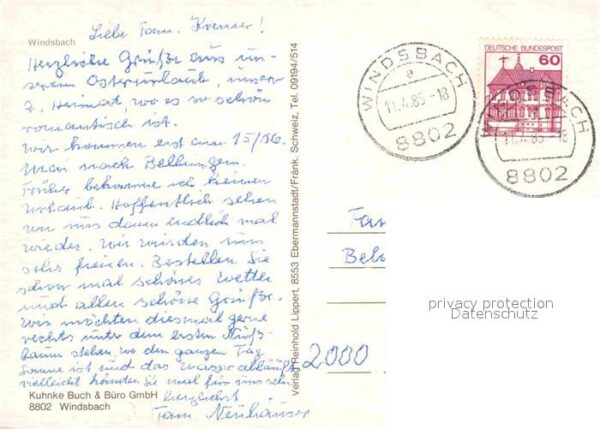 Liebe Fam. Kremer!
Windsbach
Herzliche Grüße aus un-
serem Osterurlaub, unser
2. Heimat, wo es so schön
romantisch ist.
Wir kommen erst am 15/16.
Mai nach Bellingen.
Früher bekomme ich keinen
Urlaub. Hoffentlich sehen
wir uns dann endlich mal
wieder. Wir würden uns
sehr freuen. Bestellen Sie
schon mal schönes Wetter
und allen schöne Grüße.
Wir möchten diesmal gerne
rechts unter dem ersten
baum stehen, wo den ganzen Tag
Sonne ist und das Wasser abläuft
vielleicht könnten Sie mal für uns sehn
herzlichst
Fam. Neuhäuser
Kuhnke Buch & Büro GmbH
8802 Windsbach
Verlag Reinhold Lippert, 8553 Ebermannstadt/Fränk. Schweiz, Tel. 09194/514
WINDSBACH
a
11.4.85-18
8802
DEUTSCHE BUNDESPOST
60
WINDSBACH
8802
Fam
2000
privacy protection
Datenschutz